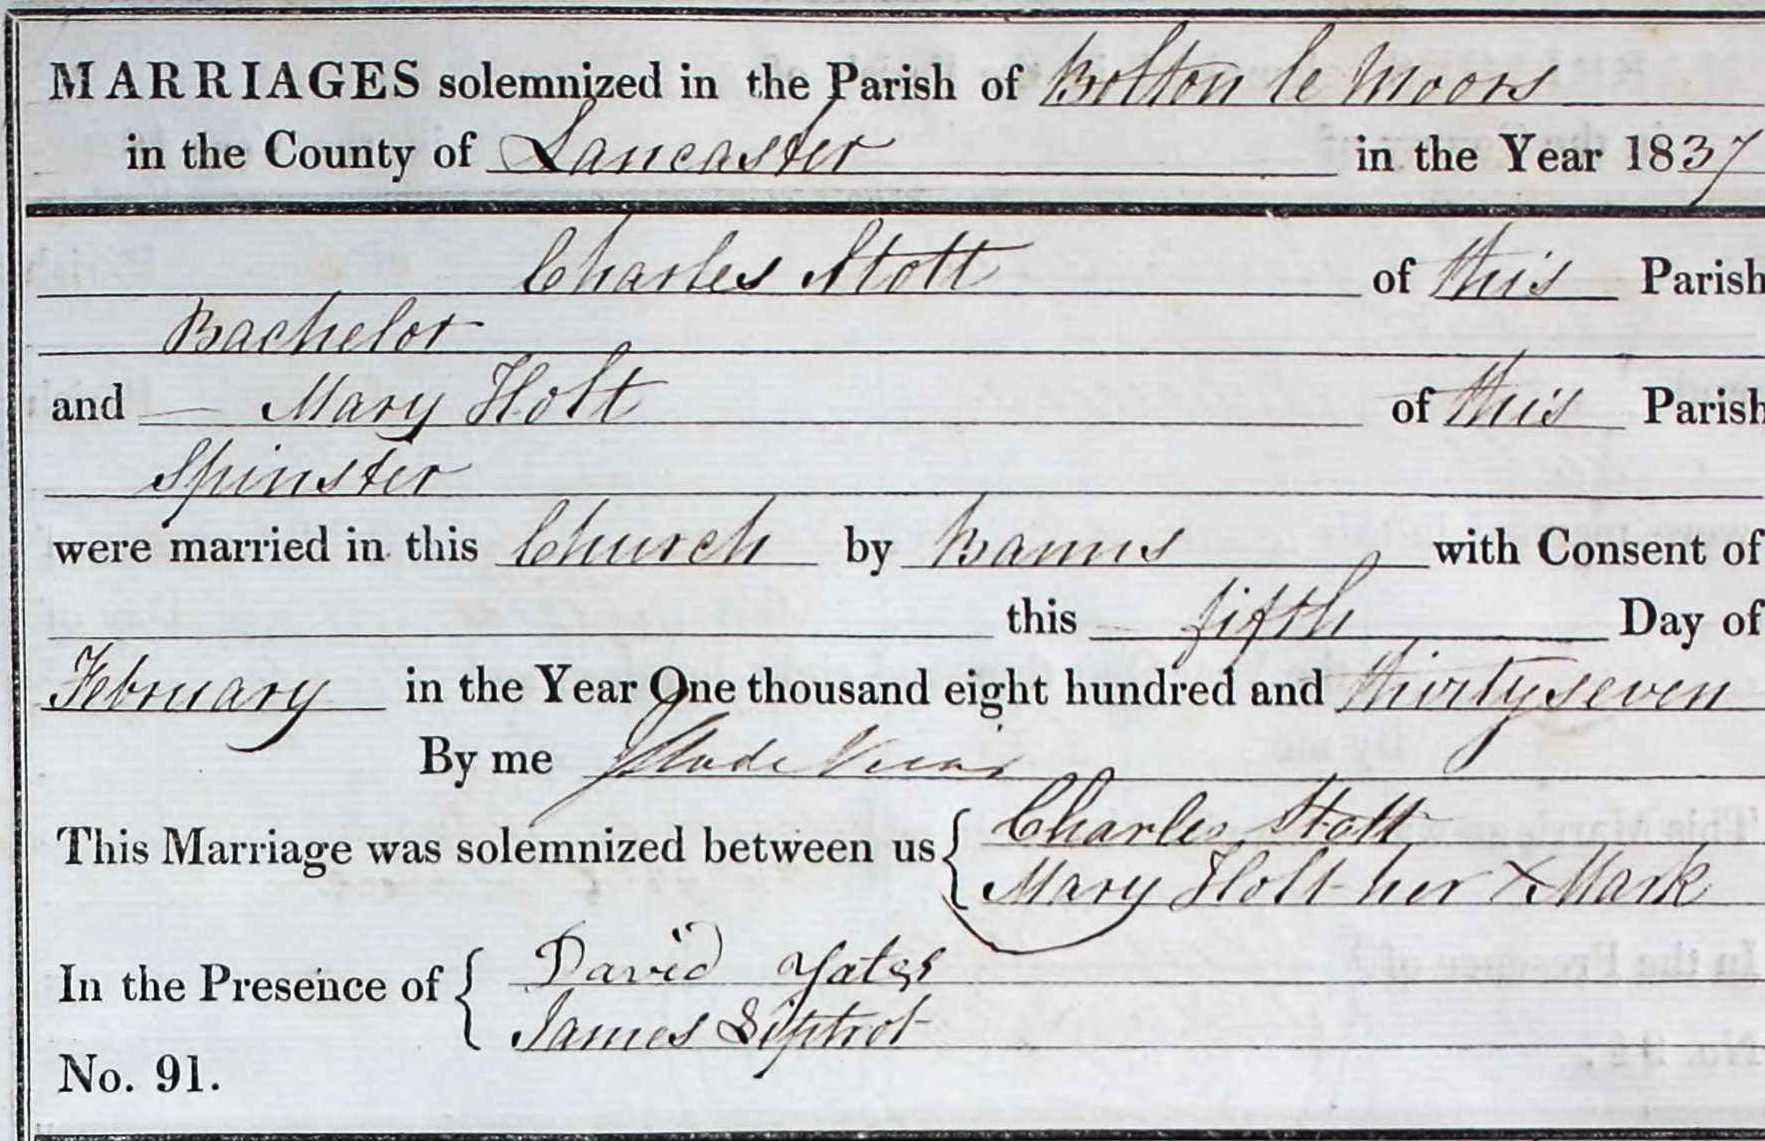 MARRIAGES solemnized in the Parish of Bolton le Moors
in the County of Lancaster in the Year 1837
Charles Stott of this Parish
Bachelor
and Mary Holt of this Parish
Spinster
were married in this Church by Banns with Consent of
this fifth Day of
February in the Year One thousand eight hundred and thirty seven
By me J Slade Vicar
This Marriage was solemnized between us { Charles Stott
Mary Holt her X Mark
In the Presence of { David Yates
James Liptrot
No. 91.